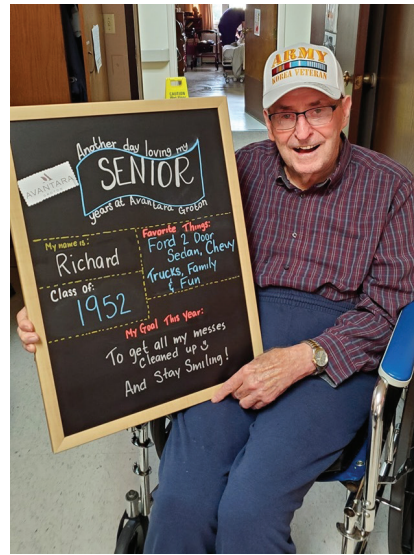 ARMY
KOREA VETERAN
CAUTION
Another day loving my
SENIOR
years at Avantara Groton
AVANTARA
My name is:
Richard
Class of:
1952
Favorite Things:
Ford 2 Door
Sedan, Chevy
Trucks, Family
& Fun
My Goal This Year:
To get all my messes
cleaned up
And Stay Smiling!